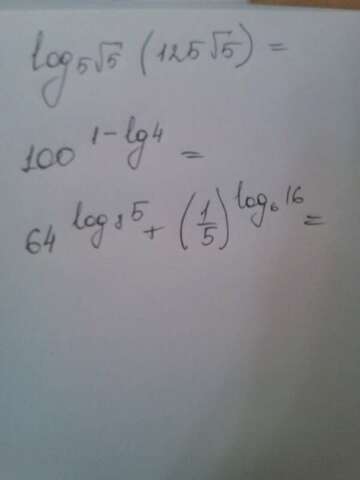 log₅√₅ (125√5) =
100^(1-lg4) =
64^(log₈5) + (1/5)^(log₆16) =